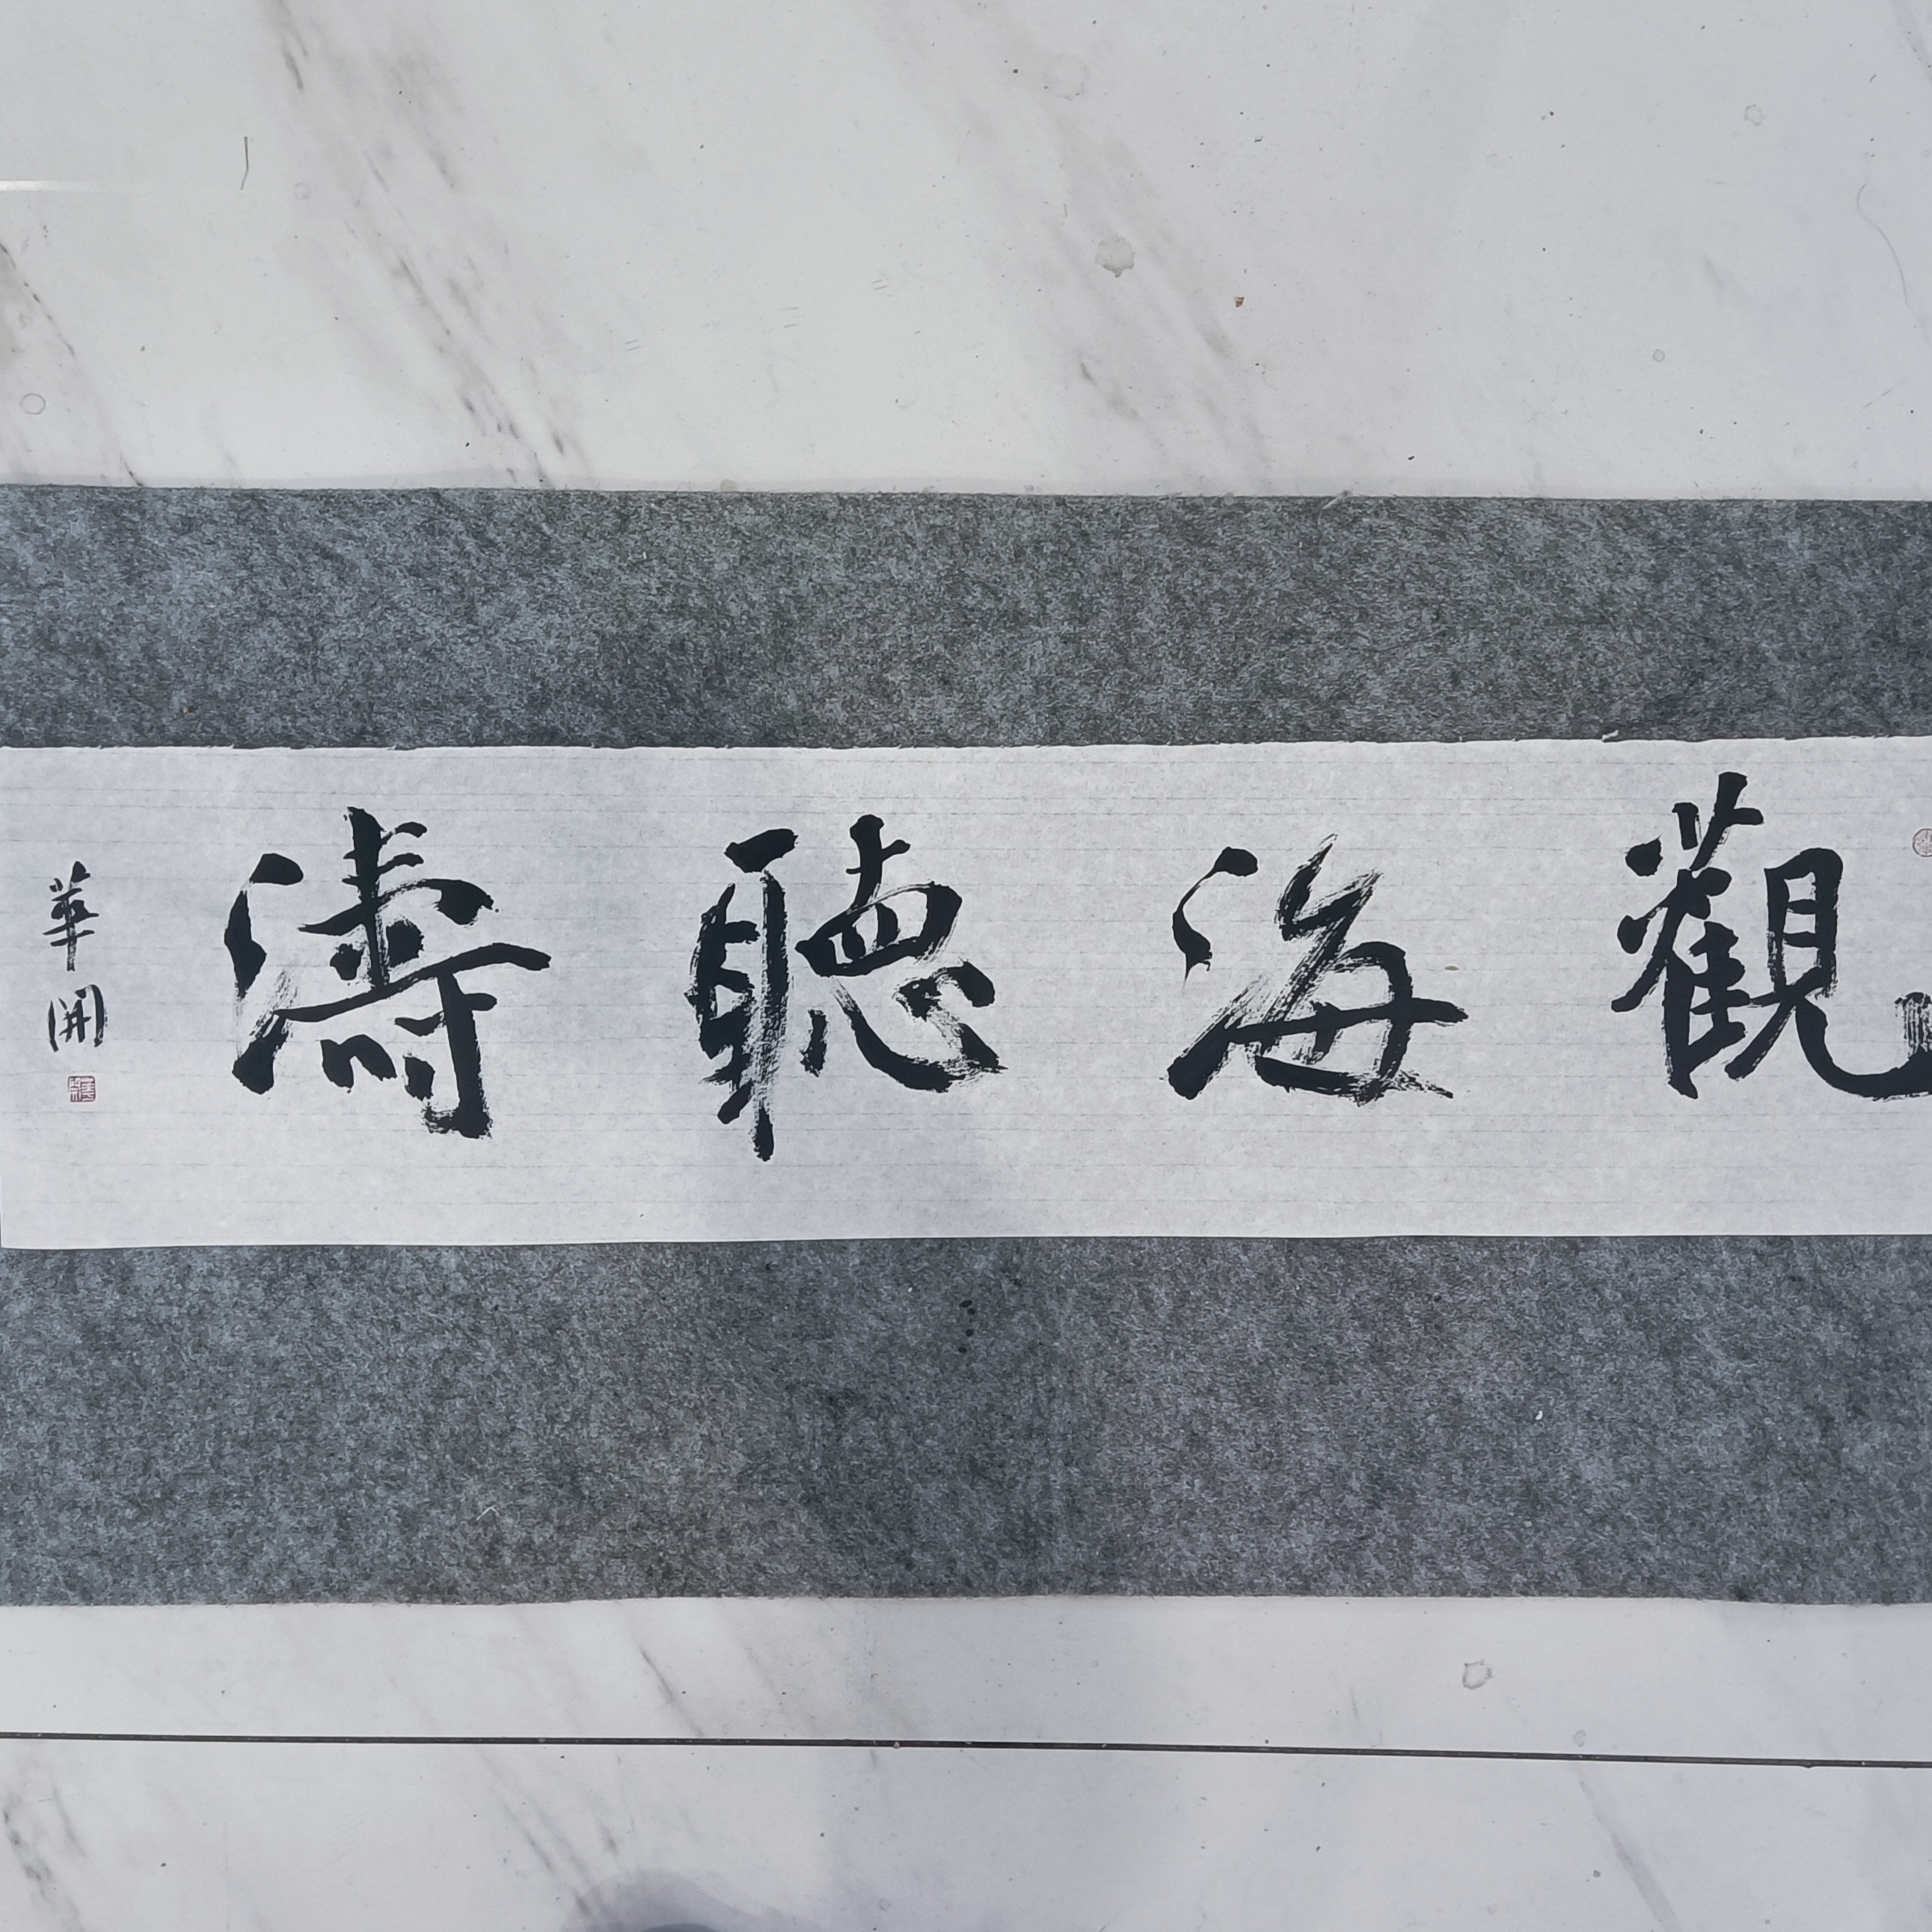 觀海聽濤
華開